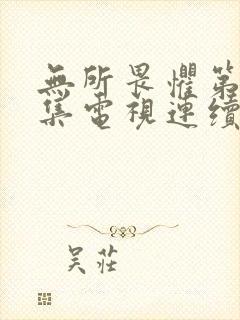 無所畏懼第
集電視連續
吳莊